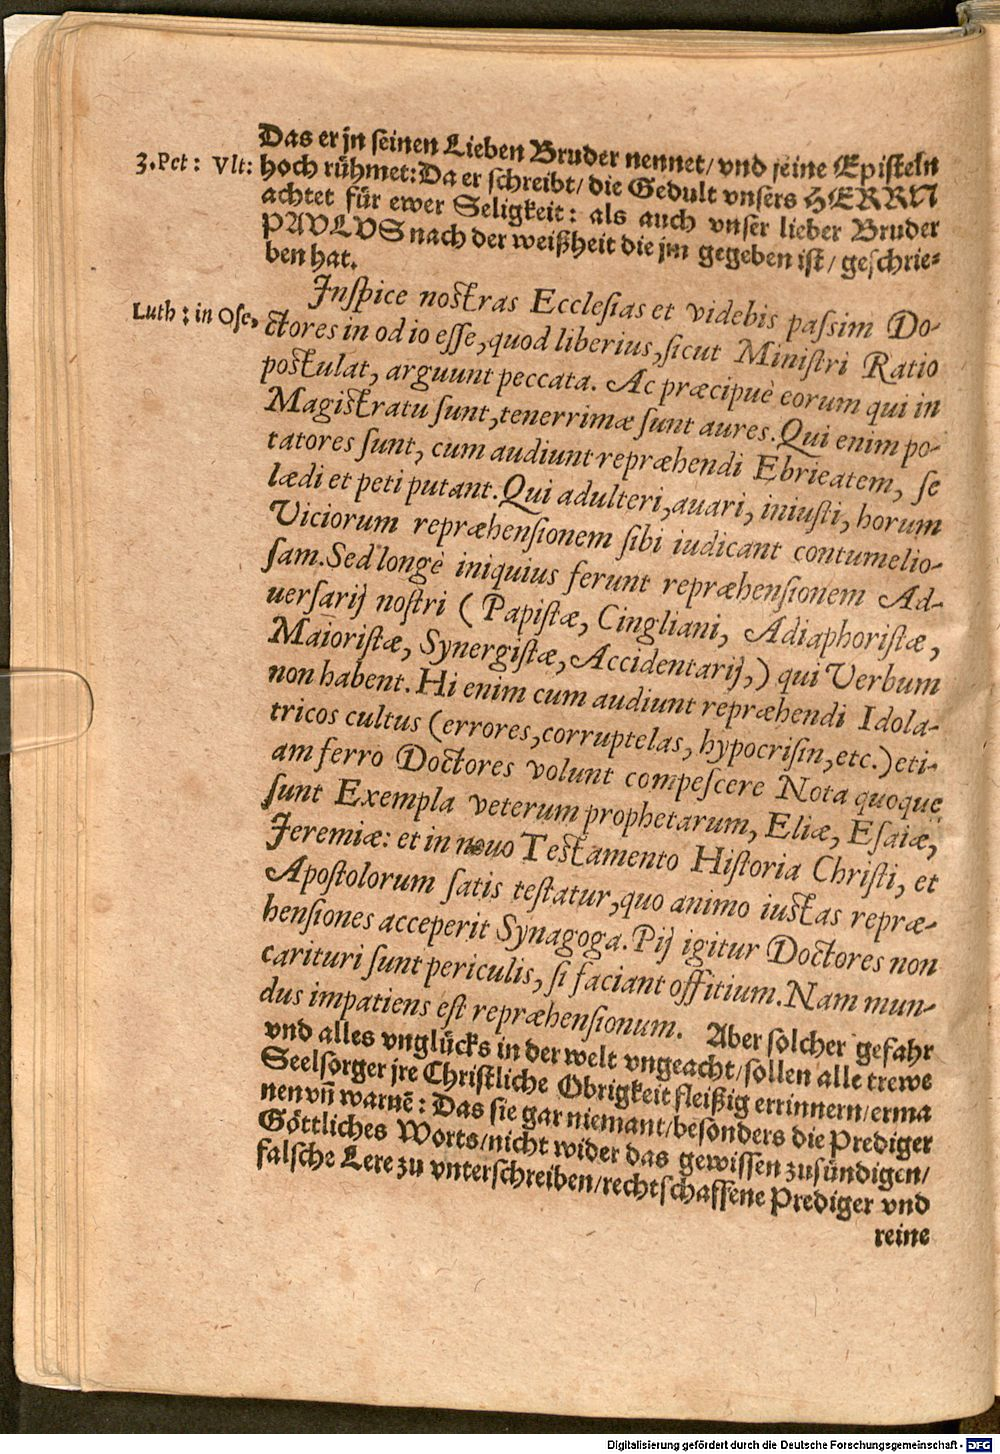 Das er jn seinen Lieben Bruder nennet/ vnd seine Episteln
3. Pet: Vlt:
hoch rühmet: Da er schreibt/ die Gedult vnsers HERRN
achtet für ewer Seligkeit: als auch vnser lieber Bruder
PAVLVS nach der weißheit die jm gegeben ist/ geschrie-
ben hat.
Luth: in Ose,
Inspice nostras Ecclesias et videbis passim Do-
ctores in odio esse, quod liberius, sicut Ministri Ratio
postulat, arguunt peccata. Ac præcipuè eorum qui in
Magistratu sunt, tenerrimæ sunt aures. Qui enim po-
tatores sunt, cum audiunt repræhendi Ebrieatem, se
lædi et peti putant. Qui adulteri, auari, iniusti, horum
Viciorum repræhensionem sibi iudicant contumelio-
sam. Sed longè iniquius ferunt repræhensionem Ad-
uersarij nostri ( Papistæ, Cingliani, Adiaphoristæ,
Maioristæ, Synergistæ, Accidentarij, ) qui Verbum
non habent. Hi enim cum audiunt repræhendi Idola-
tricos cultus (errores, corruptelas, hypocrisin, etc.) eti-
am ferro Doctores volunt compescere Nota quoque
sunt Exempla veterum prophetarum, Eliæ, Esaiæ,
Jeremiæ: et in nouo Testamento Historia Christi, et
Apostolorum satis testatur, quo animo iustas repræ-
hensiones acceperit Synagoga. Pij igitur Doctores non
carituri sunt periculis, si faciant offitium. Nam mun-
dus impatiens est repræhensionum. Aber solcher gefahr
vnd alles vnglücks in der welt vngeacht/ sollen alle trewe
Seelsorger jre Christliche Obrigkeit fleißig errinnern/ erma
nen vñ warnē: Das sie gar niemant/ besonders die Prediger
Göttliches Worts/ nicht wider das gewissen zusündigen/
falsche Lere zu vnterschreiben/ rechtschaffene Prediger vnd
reine
Digitalisierung gefördert durch die Deutsche Forschungsgemeinschaft - DFG